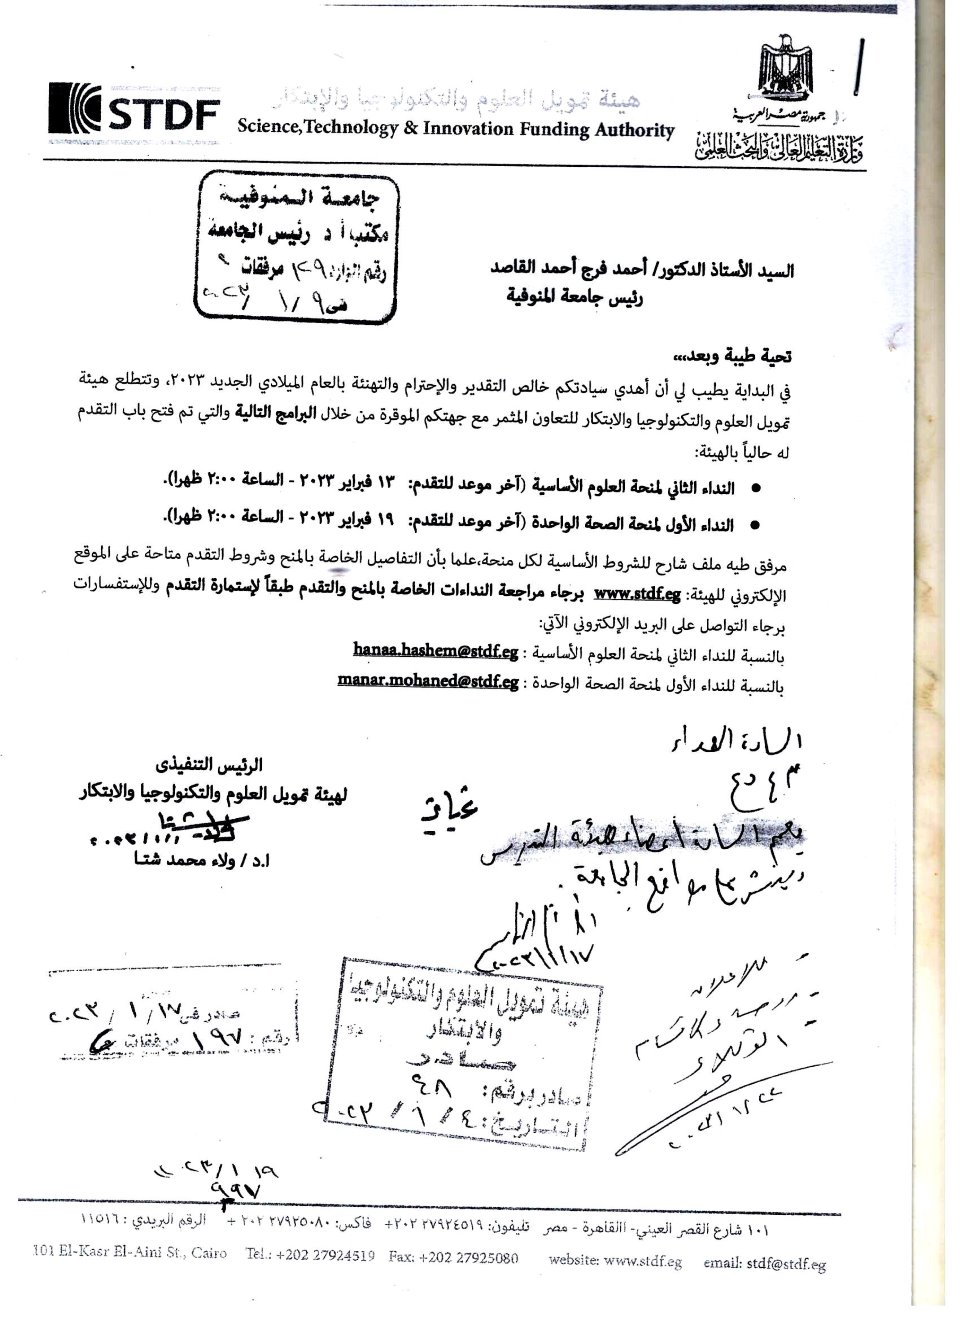 STDF
هيئة تمويل العلوم والتكنولوجيا والإبتكار
Science,Technology & Innovation Funding Authority
جمهورية مصر العربية
وزارة التعليم العالي والبحث العلمي
جامعة المنوفية
مكتب أ د رئيس الجامعة
رقم الوارد ١٤٩ مرفقات ٩
في ١/٩ / ٢٠٢٣
السيد الأستاذ الدكتور/ أحمد فرج أحمد القاصد
رئيس جامعة المنوفية
تحية طيبة وبعد،،،،
في البداية يطيب لي أن أهدي سيادتكم خالص التقدير والإحترام والتهنئة بالعام الميلادي الجديد ٢٠٢٣، وتتطلع هيئة
تمويل العلوم والتكنولوجيا والابتكار للتعاون المثمر مع جهتكم الموقرة من خلال البرامج التالية والتي تم فتح باب التقدم
له حالياً بالهيئة:
● النداء الثاني لمنحة العلوم الأساسية (آخر موعد للتقدم: ١٣ فبراير ٢٠٢٣ - الساعة ٢:٠٠ ظهرا).
● النداء الأول لمنحة الصحة الواحدة (آخر موعد للتقدم: ١٩ فبراير ٢٠٢٣ - الساعة ٢:٠٠ ظهرا).
مرفق طيه ملف شارح للشروط الأساسية لكل منحة،علما بأن التفاصيل الخاصة بالمنح وشروط التقدم متاحة على الموقع
الإلكتروني للهيئة: www.stdf.eg برجاء مراجعة النداءات الخاصة بالمنح والتقدم طبقاً لإستمارة التقدم وللإستفسارات
برجاء التواصل على البريد الإلكتروني الآتي:
بالنسبة للنداء الثاني لمنحة العلوم الأساسية : hanaa.hashem@stdf.eg
بالنسبة للنداء الأول لمنحة الصحة الواحدة : manar.mohaned@stdf.eg
السادة العمداء
الرئيس التنفيذى
لهيئة تمويل العلوم والتكنولوجيا والابتكار
ا.د / ولاء محمد شتا
السادة أعضاء هيئة التدريس
وينشر على مواقع الجامعة.
٢٠٢٣/١/١٧
صادر في ١٧ / ١ / ٢٠٢٣
رقم : ١٩٧ مرفقات
هيئة تمويل العلوم والتكنولوجيا
والابتكار
صادر
صادر برقم: ٤٨
التاريخ: ٤ / ١ / ٢٠٢٣
للاعلان
الوكلاء
٢٠٢٣/١/١٩
٩٩٧
١٠١ شارع القصر العيني- االقاهرة - مصر تليفون: ٢٧٩٢٤٥١٩ ٢٠٢+ فاكس: ٢٧٩٢٥٠٨٠ ٢٠٢ + الرقم البريدي : ١١٥١٦
101 El-Kasr El-Aini St., Cairo Tel.: +202 27924519 Fax: +202 27925080 website: www.stdf.eg email: stdf@stdf.eg